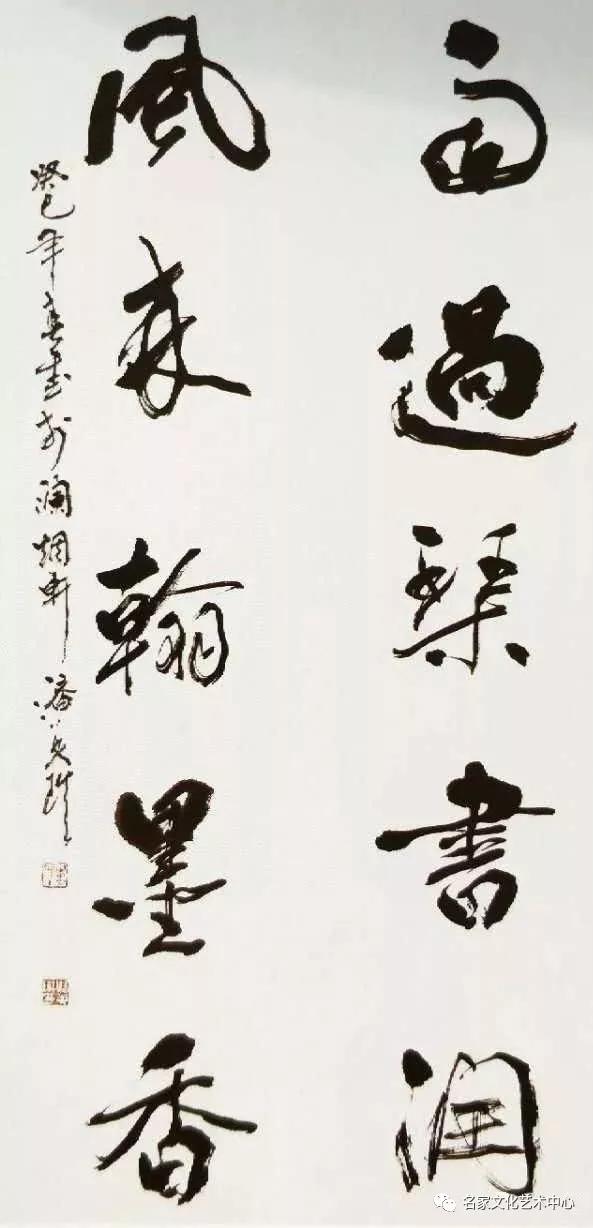 雨過琴書潤
風来翰墨香
癸巳年春書於瀾烟軒 潘
名家文化艺术中心